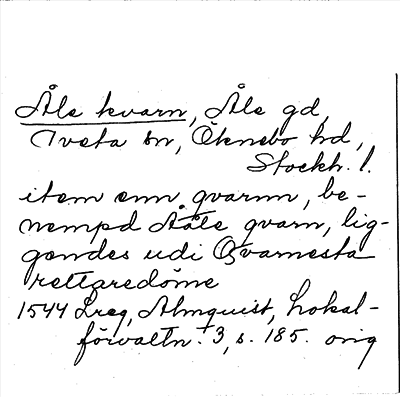 Åle kvarn, Åle gd,
Tveta sn, Öknebo hd,
Stockh. l.
item enn qvarnn, be-
nempd Aåle qvarn, lig-
gendes udi Qvarnesta
rettaredöme
1544 Lreg, Almquist, Lokal-
förvaltn. 3, s. 185. orig